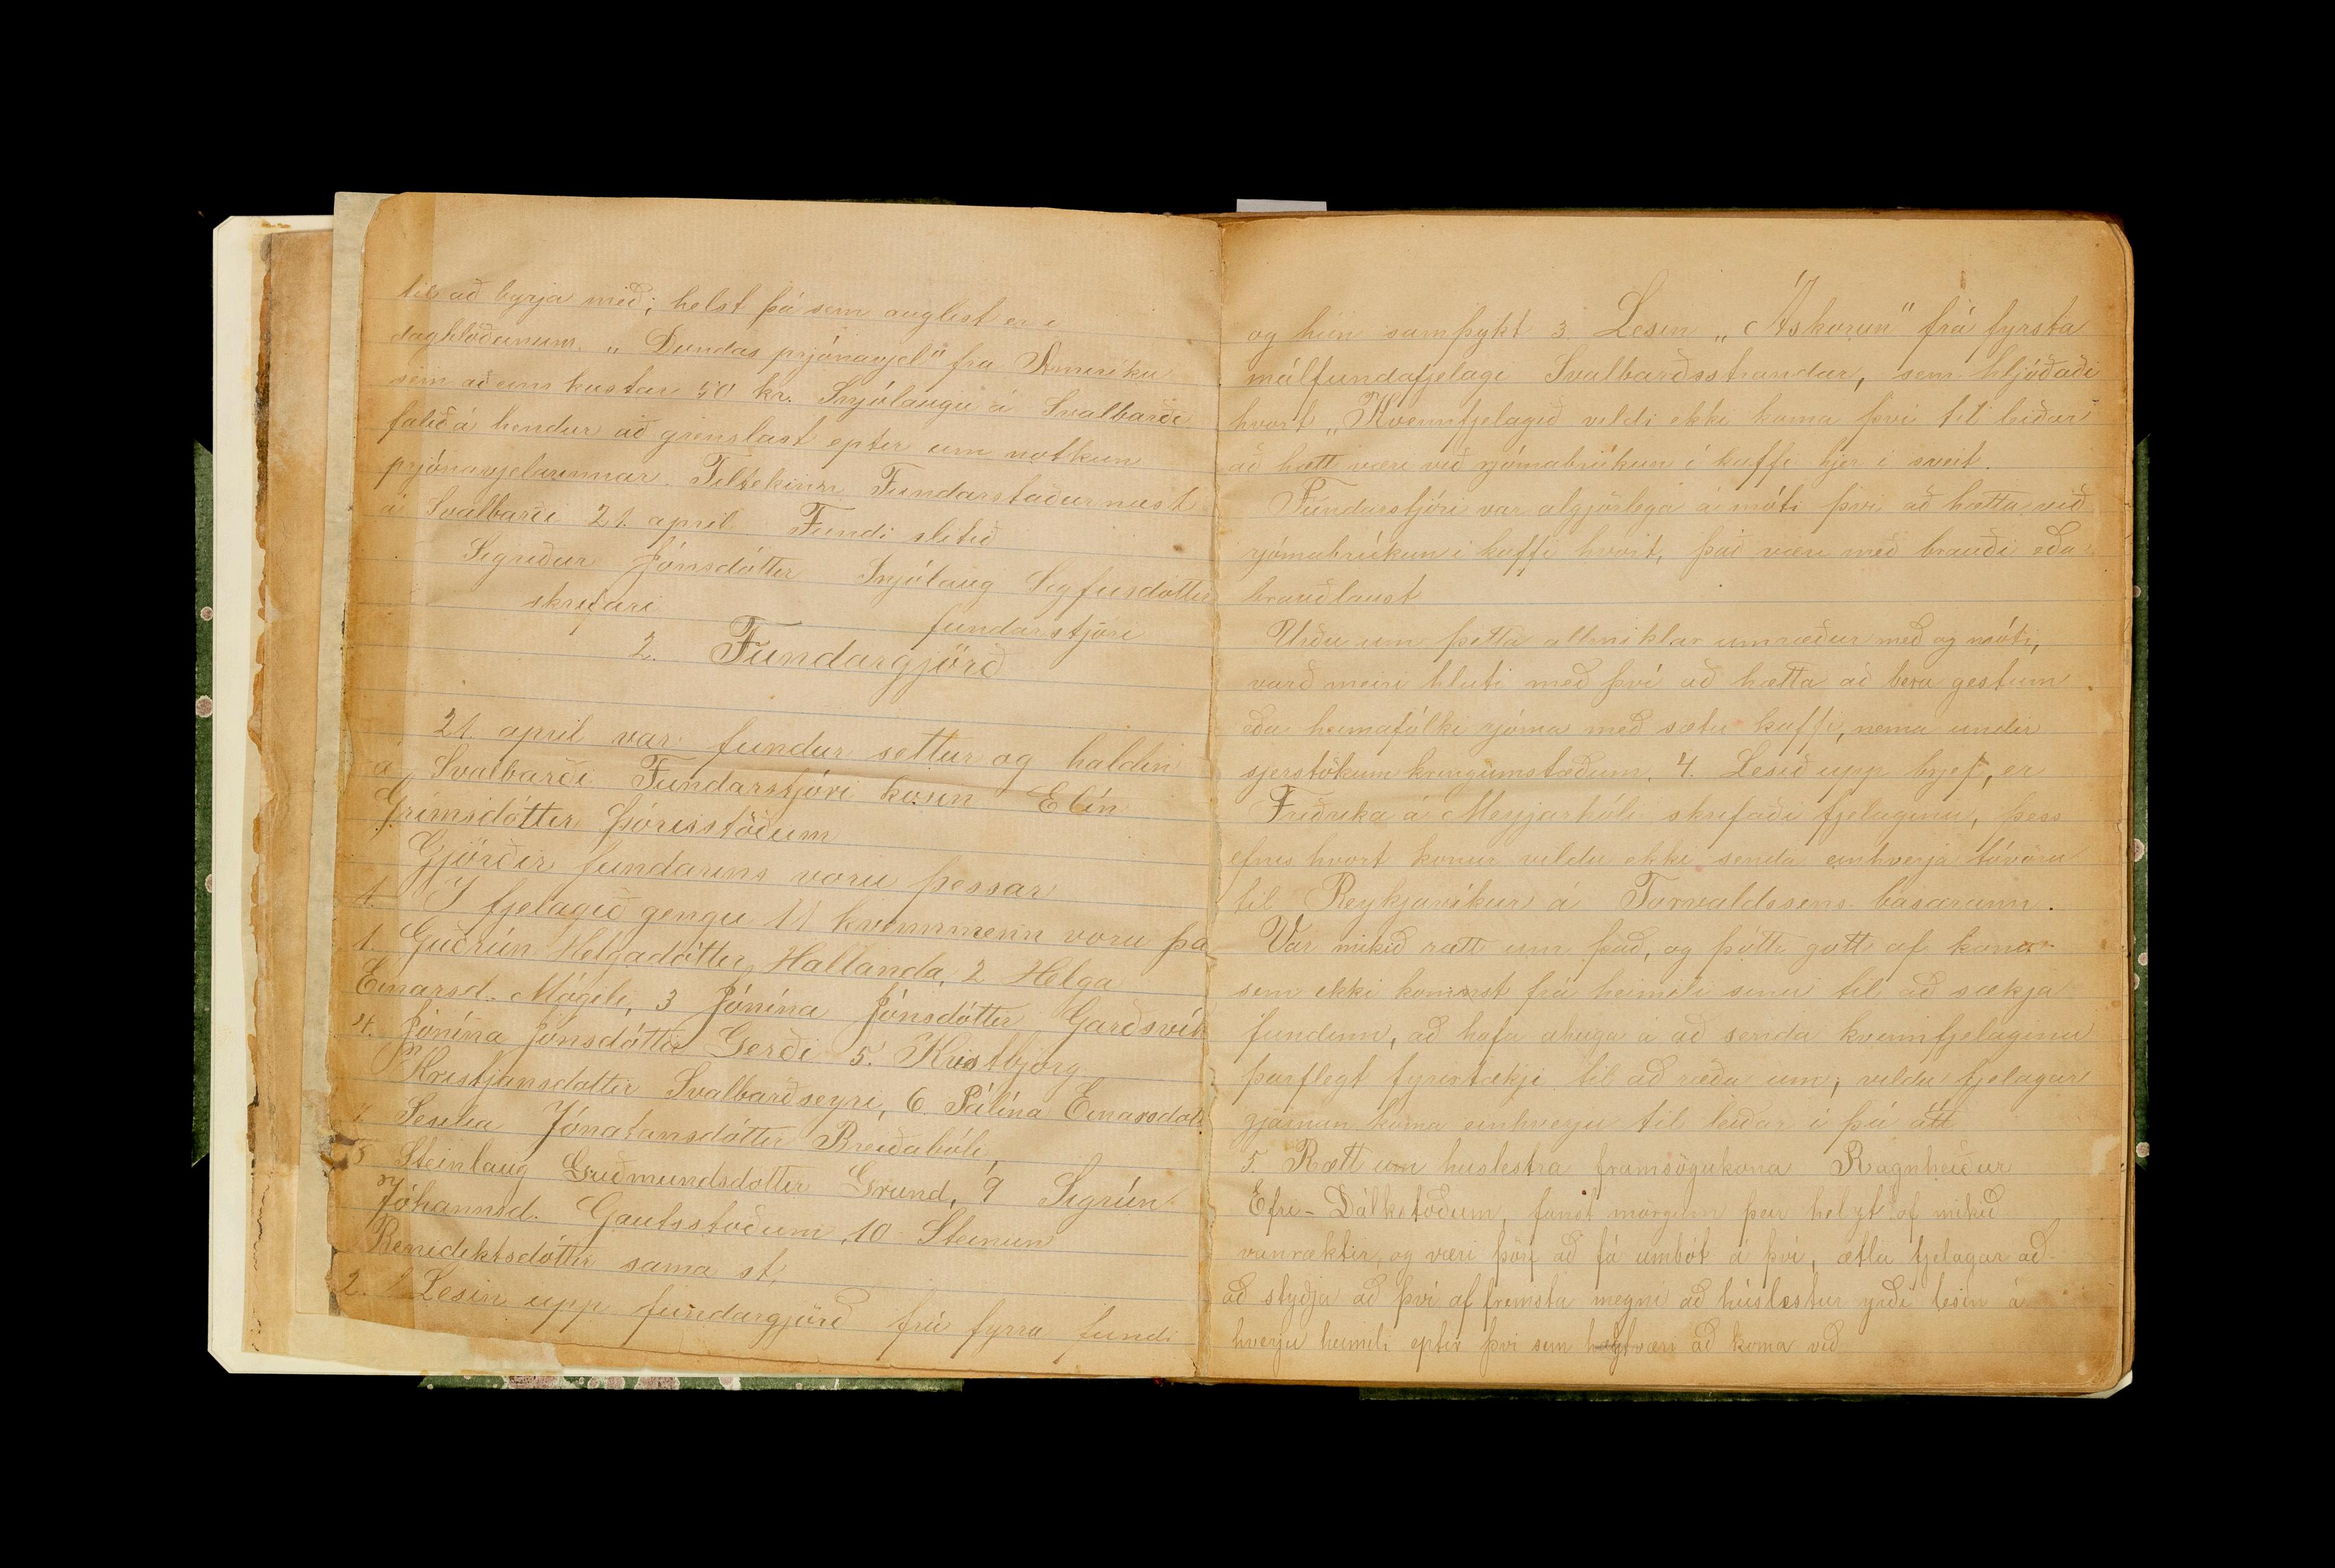 til að byrja með; helst þá sem auglest er i
dagblöðunum. „Dundas prjónavjel" fra Ameríku
sem aðeins kostar 50 kr. Snjólaugu á Svalbarði
falið á hendur að grenslast eptir um notkun
prjónavjelarinnar. Tiltekinn Fundarstaður næst
á Svalbarði 21. april. Fundi slitið
Sigriður Jónsdóttir Snjólaug Sigfusdóttir
skrifari fundarstjóri
2. Fundargjörð
21. april var fundur settur og haldin
á Svalbarði Fundarstjóri kosin Elín
Grímsdóttir Þórisstöðum
Gjörðir fundarins voru þessar
1. Í fjelagið gengu 11 kvennmenn voru þa
1. Guðrún Helgadóttir Hallanda, 2 Helga
Einarsd. Mógili, 3 Jónína Jónsdóttir Garðsvík
4. Jónína Jónsdóttir Gerði 5. Kristbjorg
Kristjansdottir Svalbarðseyri, 6. Pálína Einarsdott
7 Seselia Jónatansdóttir Breiðabóli,
8 Steinlaug Guðmundsdottir Grund, 9 Sigrún
Jóhannsd. Gautsstoðum, 10 Steinun
Benidiktsdóttir sama st,
2. Lesin upp fundargjörð frá fyrra fundi
og hún samþykt 3. Lesin „Áskorun" frá fyrsta
málfundafjelagi Svalbarðsstrandar, sem hljóðaði
hvort „Kvennfjelagið vildi ekki koma því til leiðar
að hætt væri við rjómabrúkun í kaffi hjer i sveit.
Fundarstjóri var algjörlega á móti þvi að hætta við
rjómabrúkun i kaffi hvort, það væri með brauði eða
brauðlaust
Urðu um þetta allmiklar umræður með og móti,
varð meiri hluti með því að hætta að bera gestum
eða heimafólki rjóma með sætu kaffi, nema undir
sjerstökum kringumstæðum. 4. Lesið upp brjef, er
Friðrika á Meyjarhóli skrifaði fjelaginu, þess
efnis hvort konur vildu ekki senda einhverja tóvöru
til Reykjavíkur á Torvaldssens-basarann.
Var mikið rætt um það, og þótti gott af konu
sem ekki kominst frá heimili sínu til að sækja
fundinn, að hafa ahuga á að senda kvennfjelaginu
þarflegt fyrirtækji til að ræða um; vildu fjelagar
gjarnan koma einhverju til leiðar í þá átt
5. Rætt um huslestra framsögukona Ragnheiður
Efri-Dálkstoðum, fanst morgum þeir helzt of mikið
vanræktir, og væri þörf að fá umbót á því, ætla fjelagar að
að styðja að því af fremsta megni að húslestur yrði lesin á
hverju heimili eptir þvi sem hægt væri að koma við